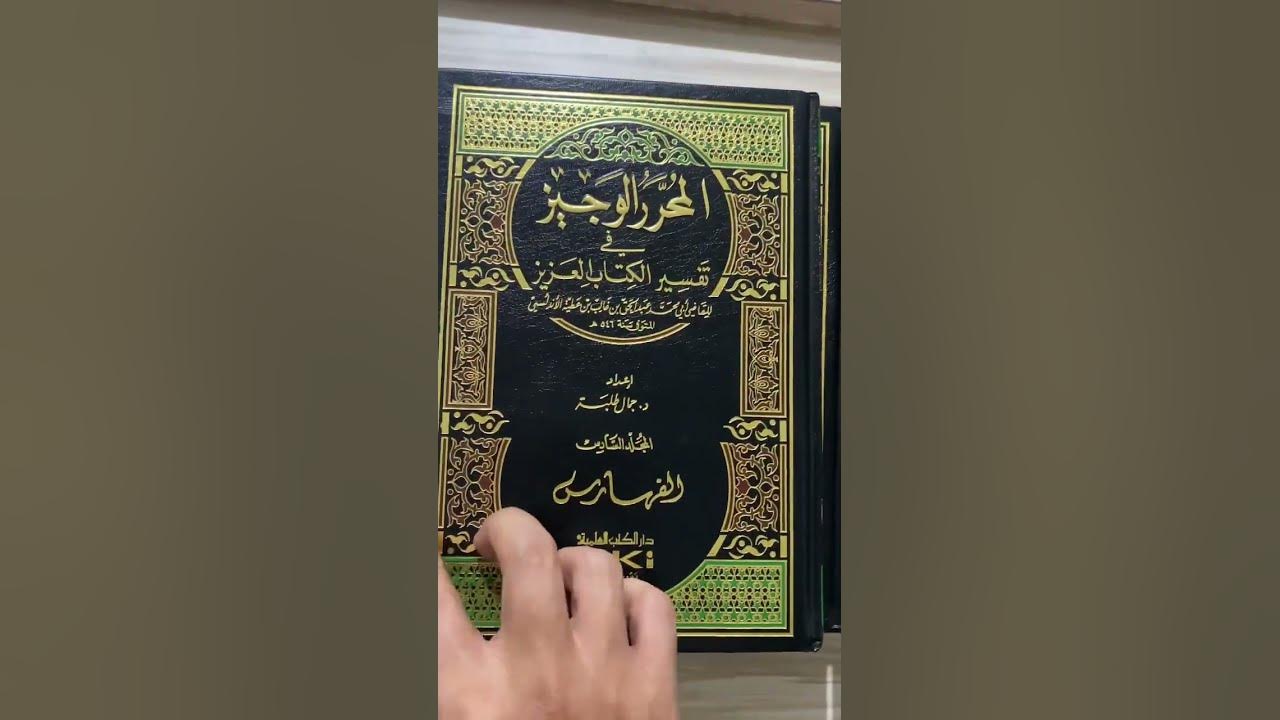 المحُرَّرُ الوَجِيز
في
تَفسِير الكِتَاب العَزِيز
للقاضي أبي محمد عبد الحق بن غالب بن عطية الأندلسي
المتوفى سنة ٥٤٦ هـ
إعداد
د. جمال طلبة
المجلّد السّادس
الفهارس
دار الكتب العلمية